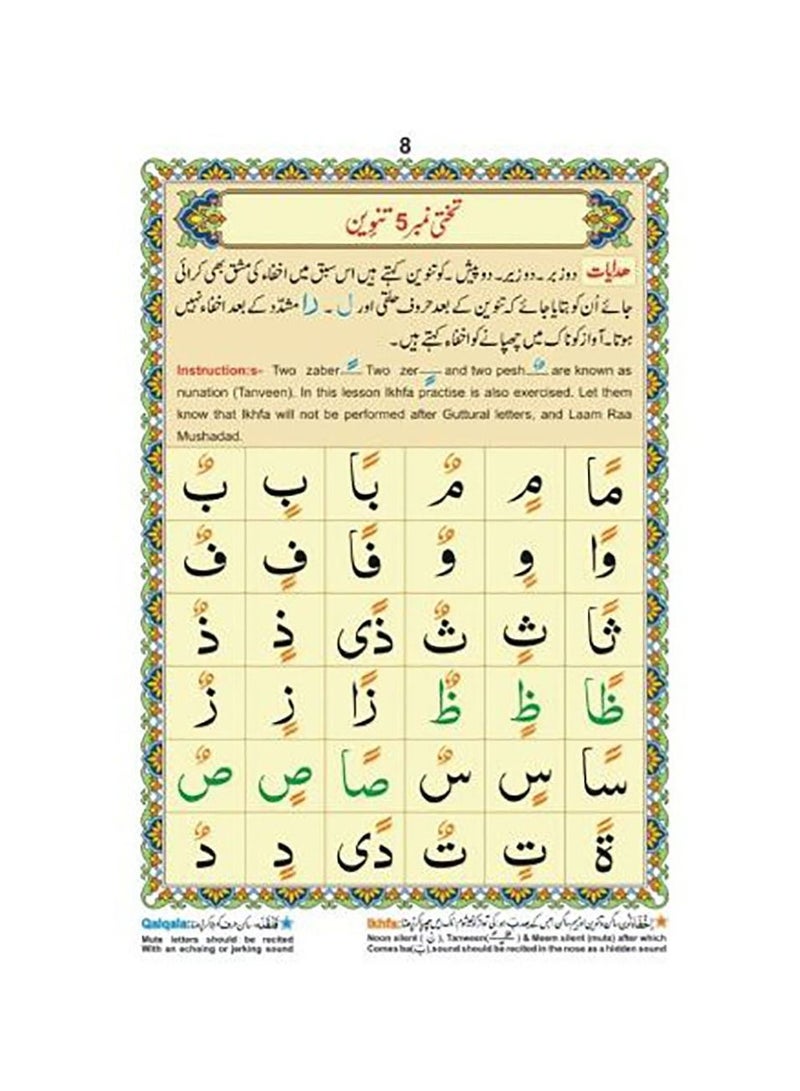 8
تختی نمبر 5 تنوین
ھدایات دو زبر ۔ دو زیر۔ دو پیش ۔ کو تنوین کہتے ہیں اس سبق میں اخفاء کی مشق بھی کرائی
جائے اُن کو بتایا جائے کہ تنوین کے بعد حروف حلقی اور ل ۔ را مشدّد کے بعد اخفاء نہیں
ہوتا۔ آواز کو ناک میں چھپانے کو اخفاء کہتے ہیں۔
Instruction:s- Two zaber ً Two zer ٍ and two pesh ٌ are known as
nunation (Tanveen). In this lesson Ikhfa practise is also exercised. Let them
know that Ikhfa will not be performed after Guttural letters, and Laam Raa
Mushadad.
مًا مٍ مٌ بًا بٍ بٌ
وًا وٍ وٌ فًا فٍ فٌ
ثًا ثٍ ثٌ ذًی ذٍ ذٌ
ظًا ظٍ ظٌ زًا زٍ زٌ
سًا سٍ سٌ صًا صٍ صٌ
ةً تٍ تٌ دًی دٍ دٌ
Ikhfa:
Noon silent (نْ), Tanween( ) & Meem silent (mute) after which
Comes ba(ب),sound should be recited in the nose as a hidden sound
Qalqala:
Mute letters should be recited
With an echoing or jerking sound